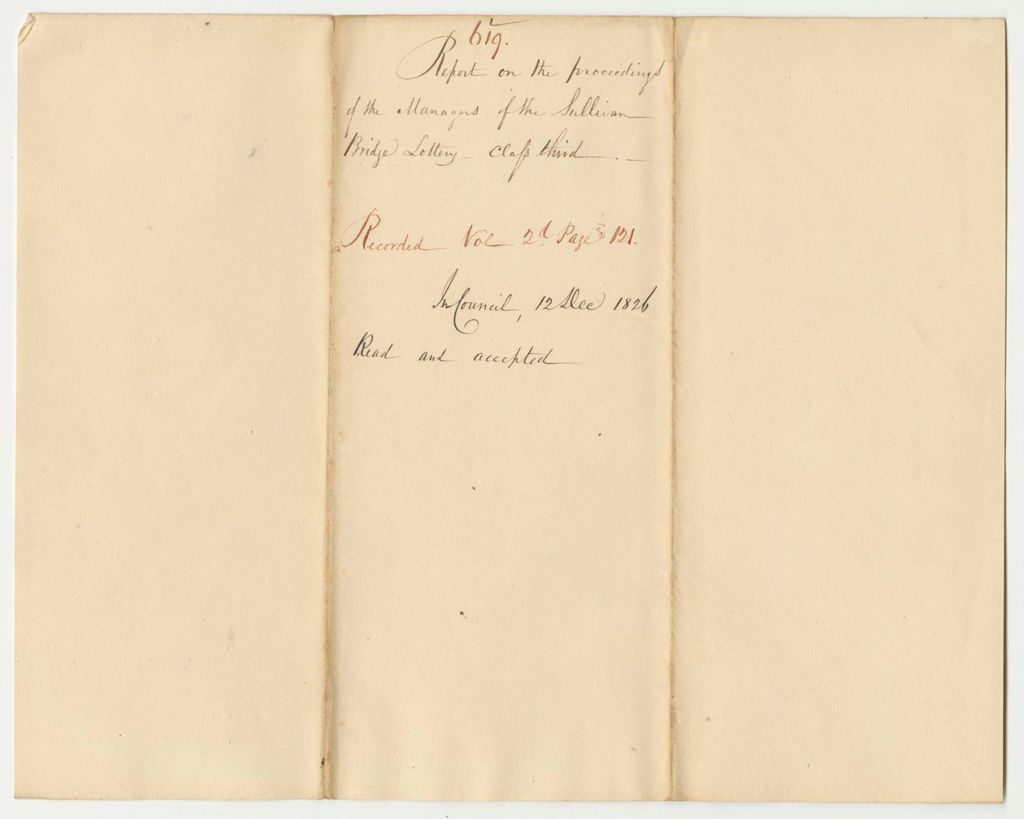 619.
Report on the proceedings
of the Managers of the Sullivan
Bridge Lottery - Class third -. -
Recorded Vol 2d Page 121.
In Council, 12 Dec 1826
Read and accepted